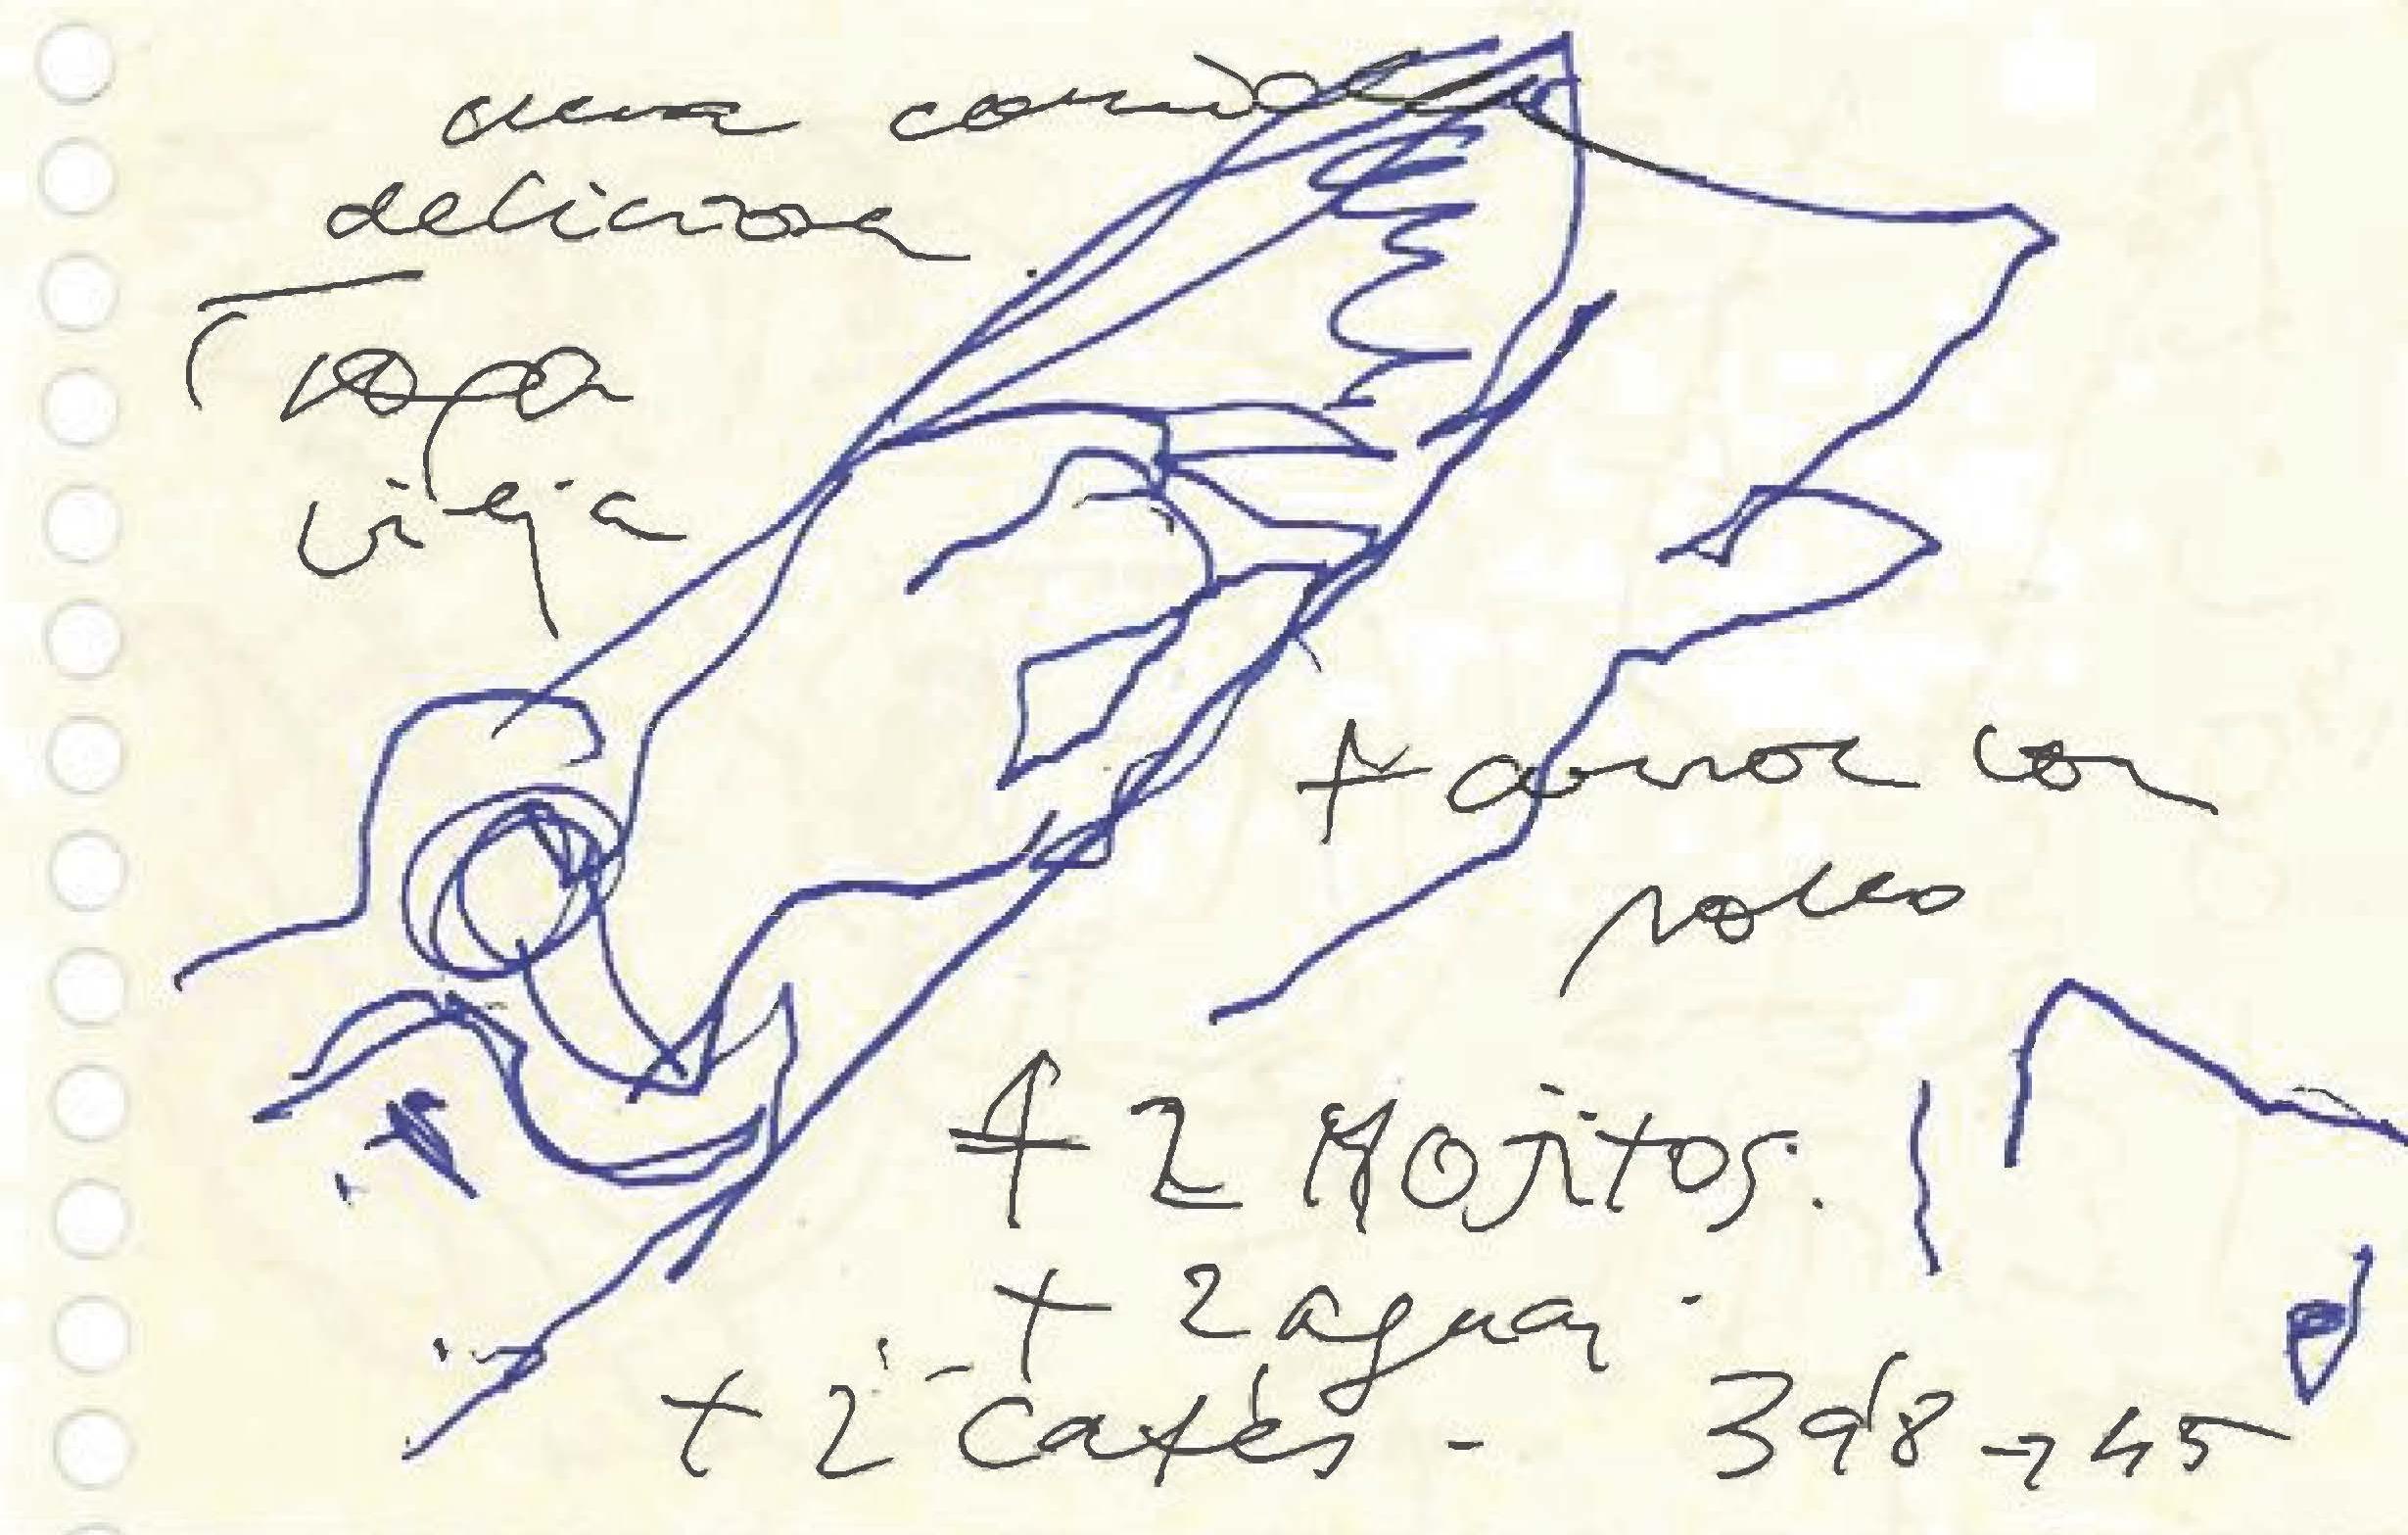 una comida
deliciosa
ropa
vieja
+ arroz con
pollo
+ 2 Mojitos.
+ 2 aguas
+ 2 cafés - 39'8 → 45